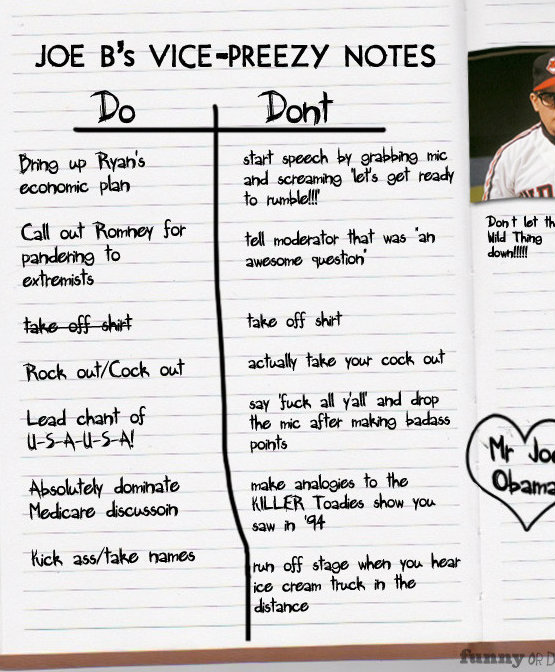 JOE B's VICE-PREEZY NOTES
Do
Bring up Ryan's
economic plan
Call out Romney for
pandering to
extremists
take off shirt
Rock out/Cock out
Lead chant of
U-S-A-U-S-A!
Absolutely dominate
Medicare discussoin
Kick ass/take names
Dont
start speech by grabbing mic
and screaming 'let's get ready
to rumble!!!'
tell moderator that was "an
awesome question"
take off shirt
actually take your cock out
say 'fuck all y'all' and drop
the mic after making badass
points
make analogies to the
KILLER Toadies show you
saw in '94
run off stage when you hear
ice cream truck in the
distance
Don't let
Wild Thing
down!!!!!
Mr Joe
Obama
funny OR